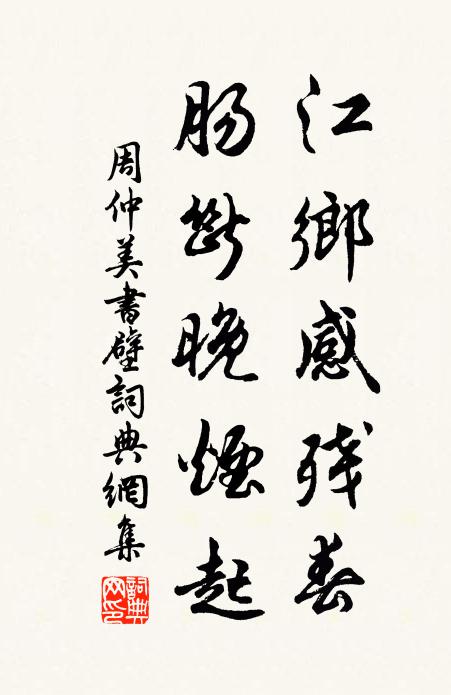 江鄉感殘春
腸斷晚煙起
周仲美書壁詞典網集
詞典網印